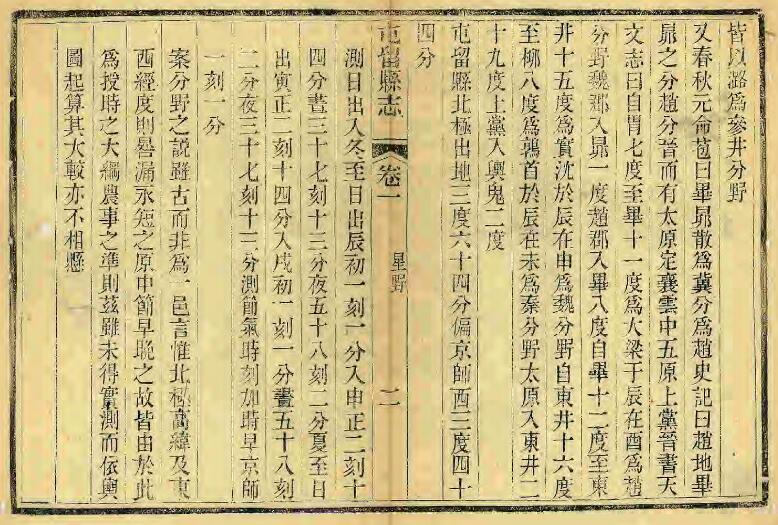 皆以潞爲參井分野
又春秋元命苞曰畢昴散爲冀分爲趙史記曰趙地畢
昴之分趙分晉而有太原定襄雲中五原上黨晉書天
文志曰自胃七度至畢十一度爲大梁于辰在酉爲趙
分野魏郡入昴一度趙郡入畢八度自畢十二度至東
井十五度爲實沈於辰在申爲魏分野自東井十六度
至柳八度爲鶉首於辰在未爲秦分野太原入東井二
十九度上黨入輿鬼二度
屯留縣北極出地三度六十四分偏京師西三度四十
四分
屯留縣志 卷一 星野 二
測日出入冬至日出辰初一刻一分入申正二刻十
四分晝三十七刻十三分夜五十八刻二分夏至日
出寅正二刻十四分入戌初一刻一分晝五十八刻
二分夜三十七刻十三分測節氣時刻加時早京師
一刻一分
案分野之說雖古而非爲一邑言惟北極高緯及東
西經度則晷漏永短之原中節早晚之故皆由於此
爲授時之大綱農事之準則茲雖未得實測而依輿
圖起算其大較亦不相懸